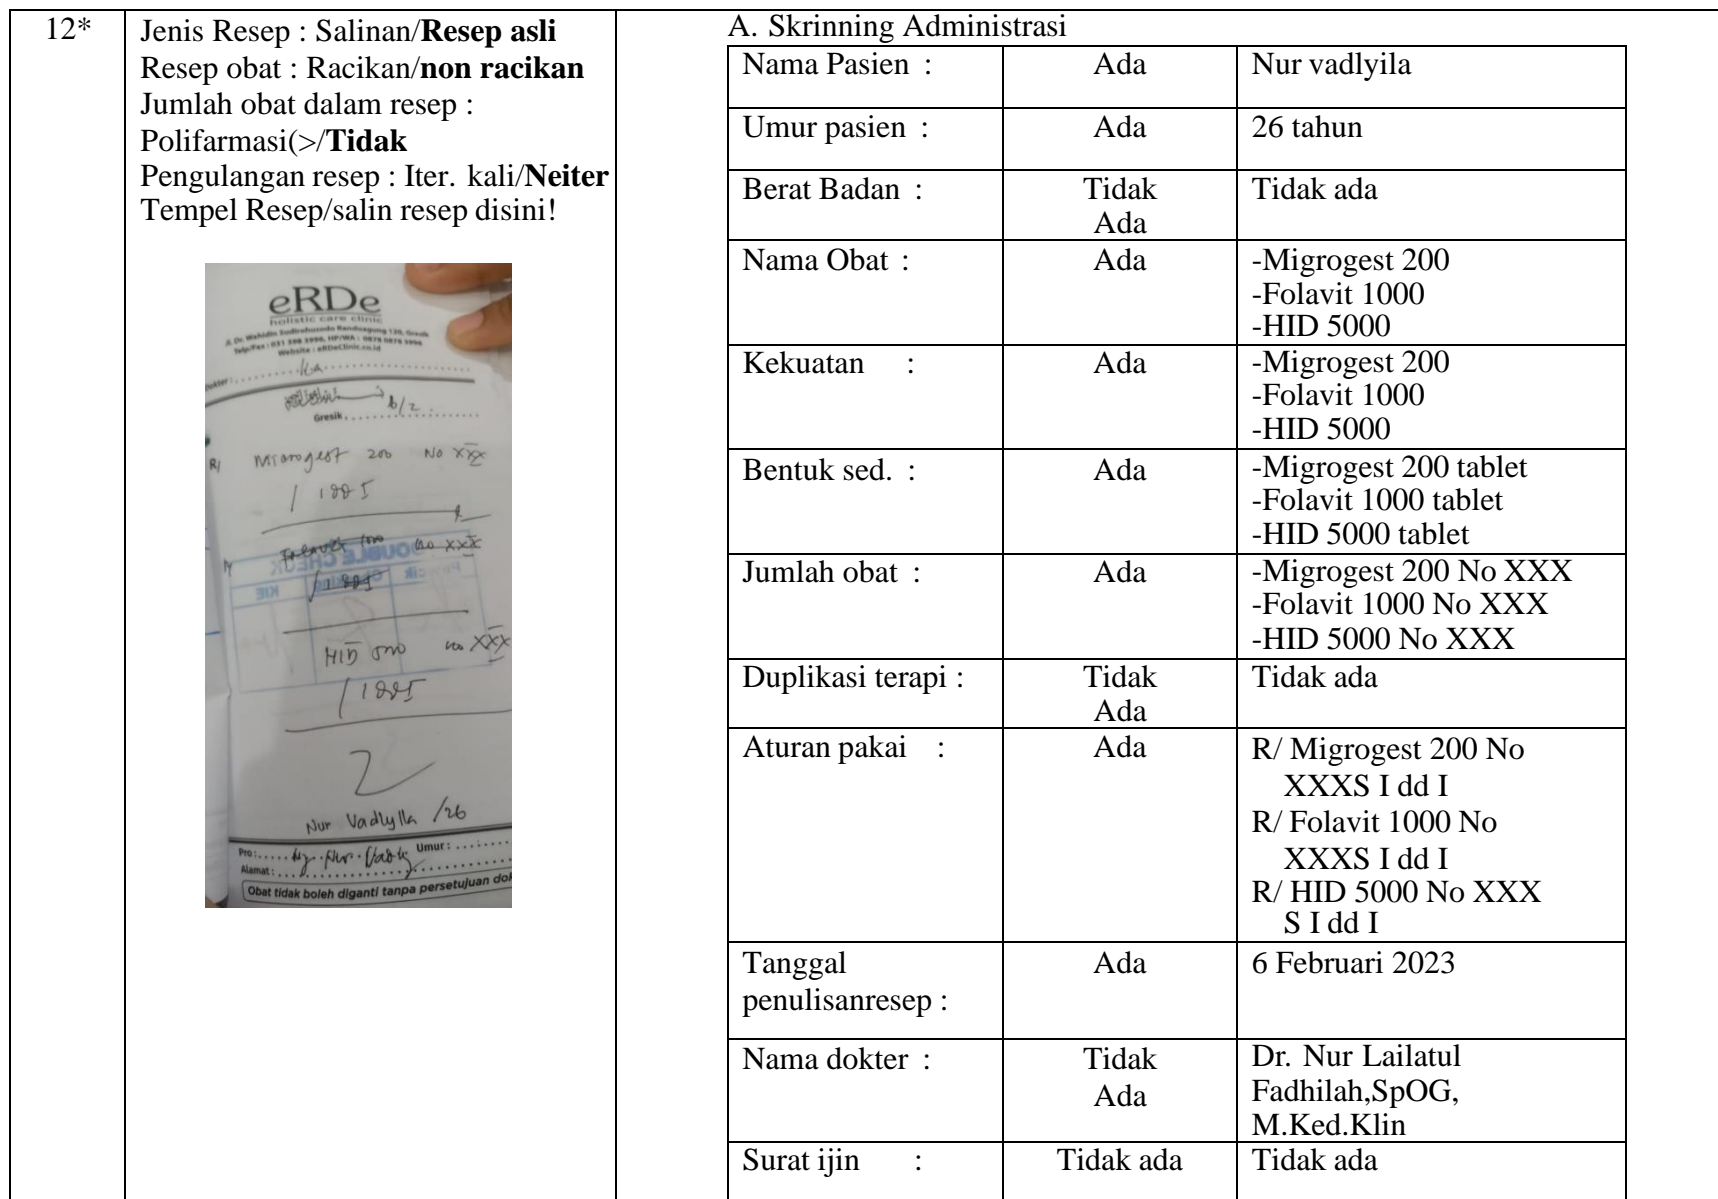 12*
Jenis Resep : Salinan/Resep asli
Resep obat : Racikan/non racikan
Jumlah obat dalam resep :
Polifarmasi(>/Tidak
Pengulangan resep : Iter. kali/Neiter
Tempel Resep/salin resep disini!
eRDe
holistic care clinic
Jl. Dr. Wahidin Sudirohusodo Randuagung 120, Gresik
Website : eRDeClinic.co.id
Dokter :
Gresik 6/2
R/ Microgest 200 No XXX
DOUBLE CHECK
KIE
HID 5000 no XXX
Nur Vadlylla /26
Pro : Umur :
Alamat :
Obat tidak boleh diganti tanpa persetujuan
A. Skrinning Administrasi
Nama Pasien : Ada Nur vadlyila
Umur pasien : Ada 26 tahun
Berat Badan : Tidak Ada Tidak ada
Nama Obat : Ada -Migrogest 200
-Folavit 1000
-HID 5000
Kekuatan : Ada -Migrogest 200
-Folavit 1000
-HID 5000
Bentuk sed. : Ada -Migrogest 200 tablet
-Folavit 1000 tablet
-HID 5000 tablet
Jumlah obat : Ada -Migrogest 200 No XXX
-Folavit 1000 No XXX
-HID 5000 No XXX
Duplikasi terapi : Tidak Ada Tidak ada
Aturan pakai : Ada R/ Migrogest 200 No
XXXS I dd I
R/ Folavit 1000 No
XXXS I dd I
R/ HID 5000 No XXX
S I dd I
Tanggal penulisanresep : Ada 6 Februari 2023
Nama dokter : Tidak Ada Dr. Nur Lailatul
Fadhilah,SpOG,
M.Ked.Klin
Surat ijin : Tidak ada Tidak ada